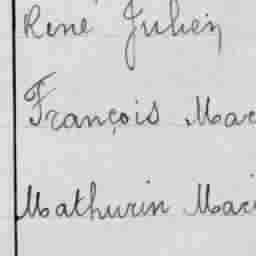 René Julien
François Mar
Mathurin Mari